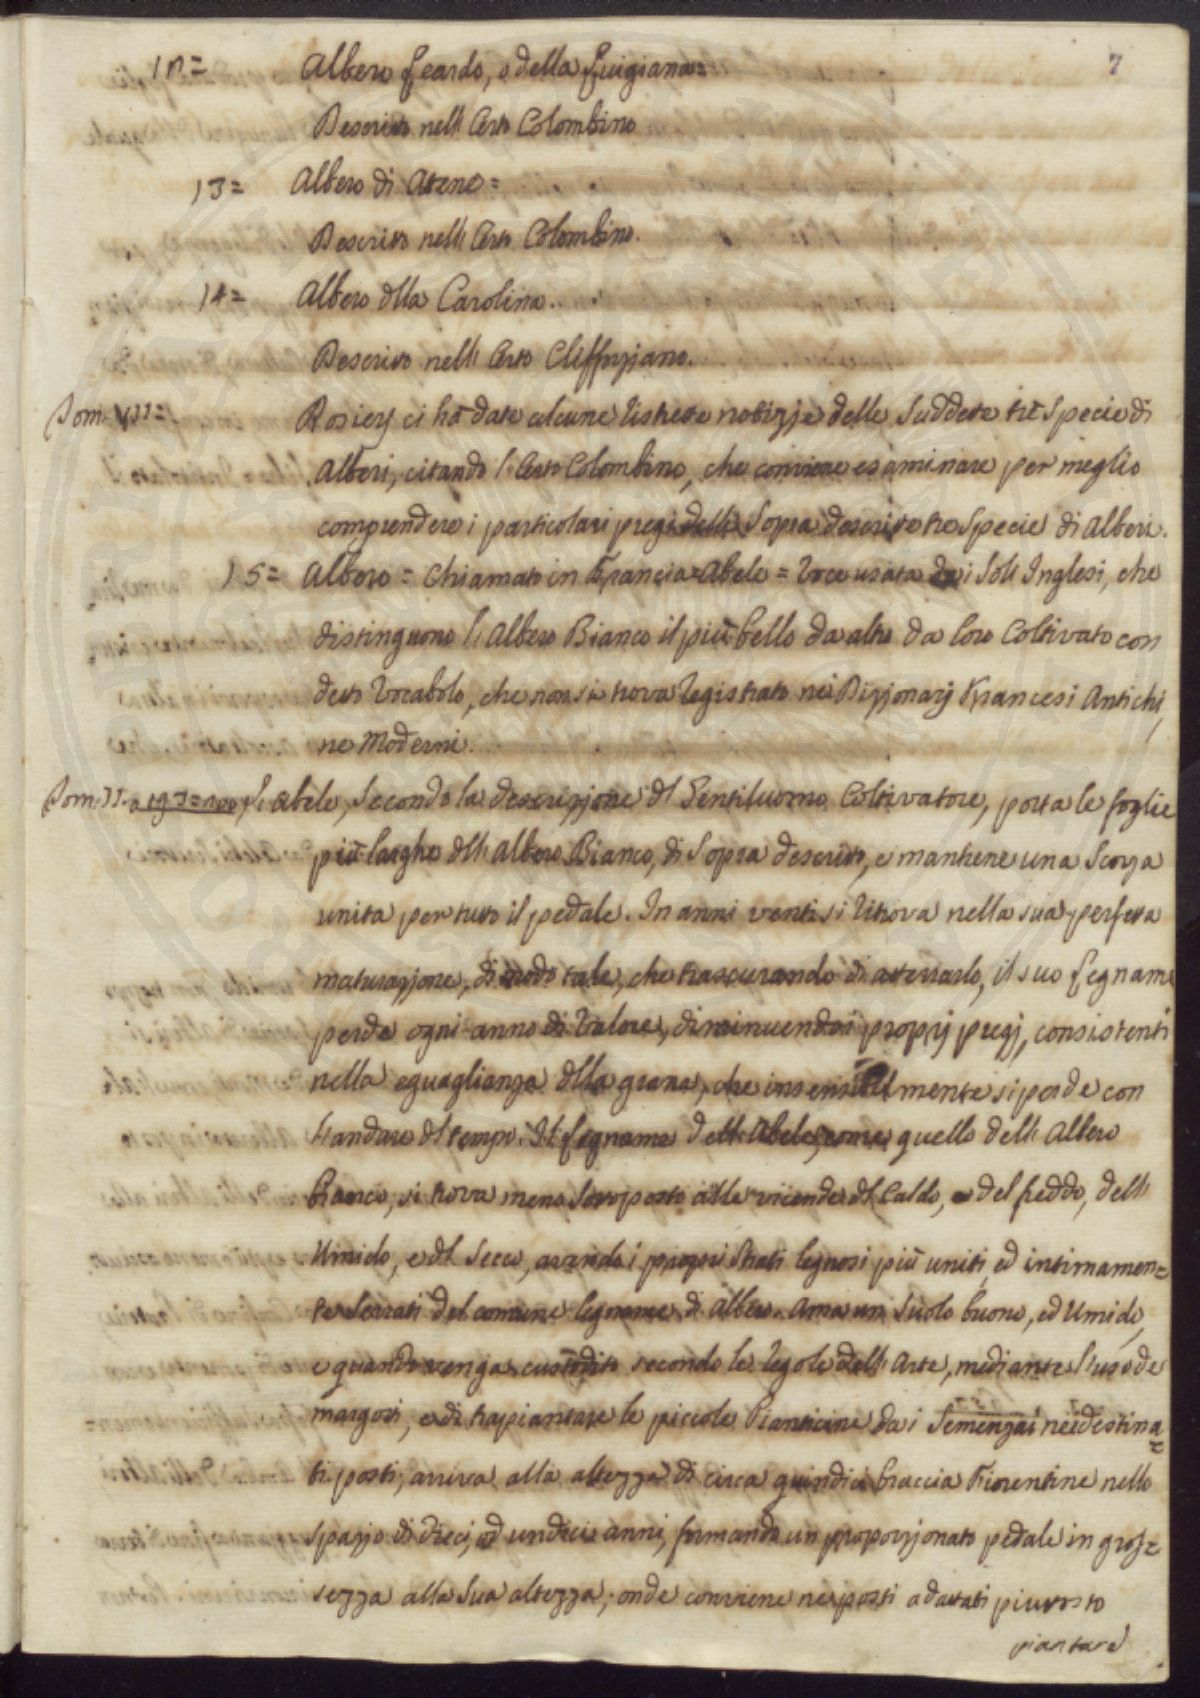 7
12= Albero Leardo, o della Luigiana=
Descritto nell'Orto Colombino
13= Albero di Atene=
Descritto nell'Orto Colombino.
14= Albero della Carolina.
Descritto nell'Orto Cliffortiano.
Tom. VII= Rosier ci ha date alcune ristrette notizje delle suddette trè Specie di
Alberi, citando l'Orto Colombino, che conviene esaminare per meglio
comprendere i particolari pregi delle Sopra descritte tre Specie di Alberi.
15= Albero = Chiamato in Francia = Abele = Voce usata dai Soli Inglesi, che
distinguono l'Albero Bianco il più bello da altro da loro Coltivato con
detto Vocabolo, che non si trova registrato nei Dizjonarj Francesi Antichi,
ne Moderni.
Tom. II. L'Abele, secondo la descrizjone del Gentiluomo Coltivatore, porta le foglie
più larghe dell'Albero Bianco, di Sopra descritto, e mantiene una Scorza
unita per tutto il pedale. In anni venti si ritrova nella sua perfetta
maturazjone, di modo tale, che trascurando di atterrarlo, il suo Legname
perde ogni anno di Valore, diminuendosi i proprj pregj, consistenti
nella eguaglianza della grana, che insensibilmente si perde con
l'andare del tempo. Il Legname dell'Abele, come quello dell'Albero
Bianco, si trova meno Sottoposto alle vicende del Caldo, e del freddo, dell'
Umido, e del Secco, avendo i proprii Strati legnosi più uniti, ed intimamen=
te Serrati del comune legname di Albero. Ama un Suolo buono, ed Umido,
e quando venga custodito secondo le regole dell'Arte, mediante l'uso de
margotti, e di trapiantare le piccole Pianticine dai Semenzai nei destina=
ti posti, arriva alla altezza di circa quindici braccia Fiorentine nello
spazjo di dieci, od undici anni, formando un proporzjonato pedale in gros=
sezza alla Sua altezza; onde conviene nei posti adattati piuttosto
piantare